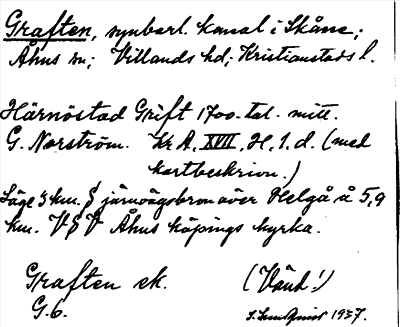 Graften, synbarl. kanal i Skåne;
Åhus sn; Villands hd; Kristianstads l.
Härnöstad Grift 1700-tal. mitt.
G. Norström. Kr A. XVII, H. 1. d. (med
kartbeskrivn.)
Läge 3 km. S järnvägsbron över Helgå å 5,9
km. V S V Åhus köpings kyrka.
Graften ek. (Vänd!)
G. 6. 1937.